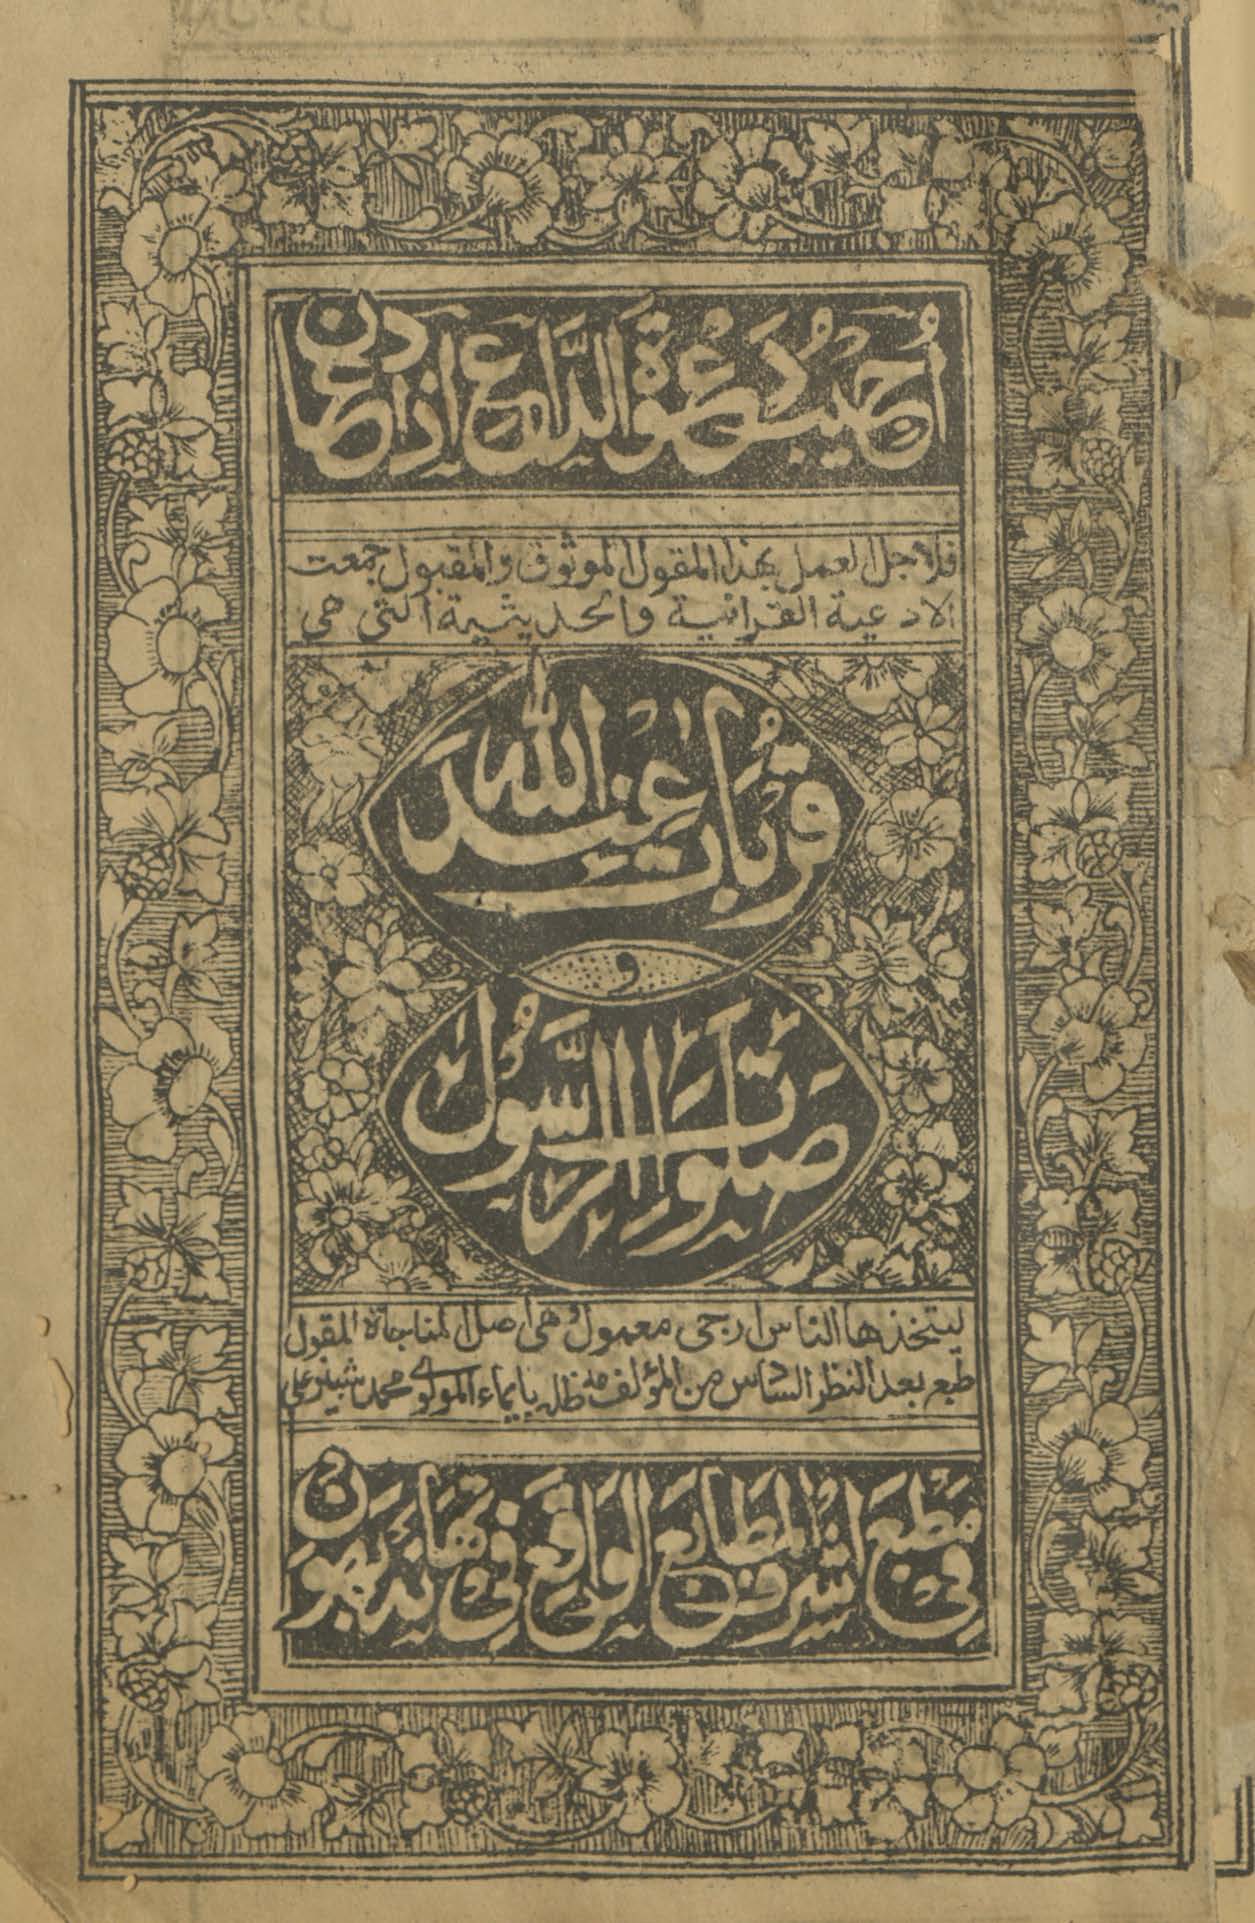 اُجِیْبُ دَعْوَةَ الدَّاعِ اِذَا دَعَانِ
فلاجل العمل بهذا المقول الموثوق والمقبول جمعت
الادعية القرانية والحديثية التي هي
قُرُبَاتٍ عِنْدَ اللّٰهِ
و
صَلَوَاتِ الرَّسُوْلِ
ليتخذها الناس ارجى معمول وهي اصل المناجاة المقول
طبع بعد النظر الشاس من المؤلف مد ظله بايماء المولوي محمد شبير علي
فِي مَطْبَعِ اَشْرَفِ الْمَطَابِعِ الْوَاقِعِ فِي تهانہ بهون